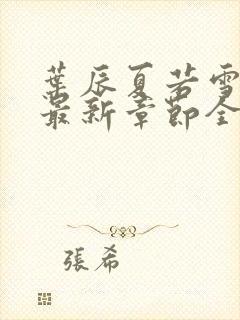 葉辰夏若雪
最新章節全
張希